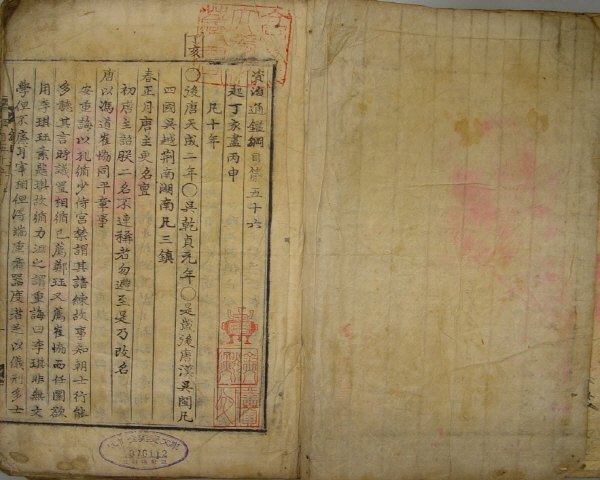 資治通鑑綱目卷五十六
起丁亥盡丙申
凡十年
丁亥
〇後唐天成二年〇吳乾貞元年〇是歲後唐漢吳閩凡
四國吳越荊南湖南凡三鎮
春正月唐主更名亶
初唐主詔朕二名不連稱者勿避至是乃改名
唐以馮道崔協同平章事
安重誨以孔循少侍宮禁謂其諳練故事知朝士行能
多聽其言時議置相循已薦鄭珏又薦崔協而任圜欲
用李琪珏素惡琪故循力沮之謂重誨曰李琪非無文
學但不廉耳宰相但得端重有器度者足以儀刑多士